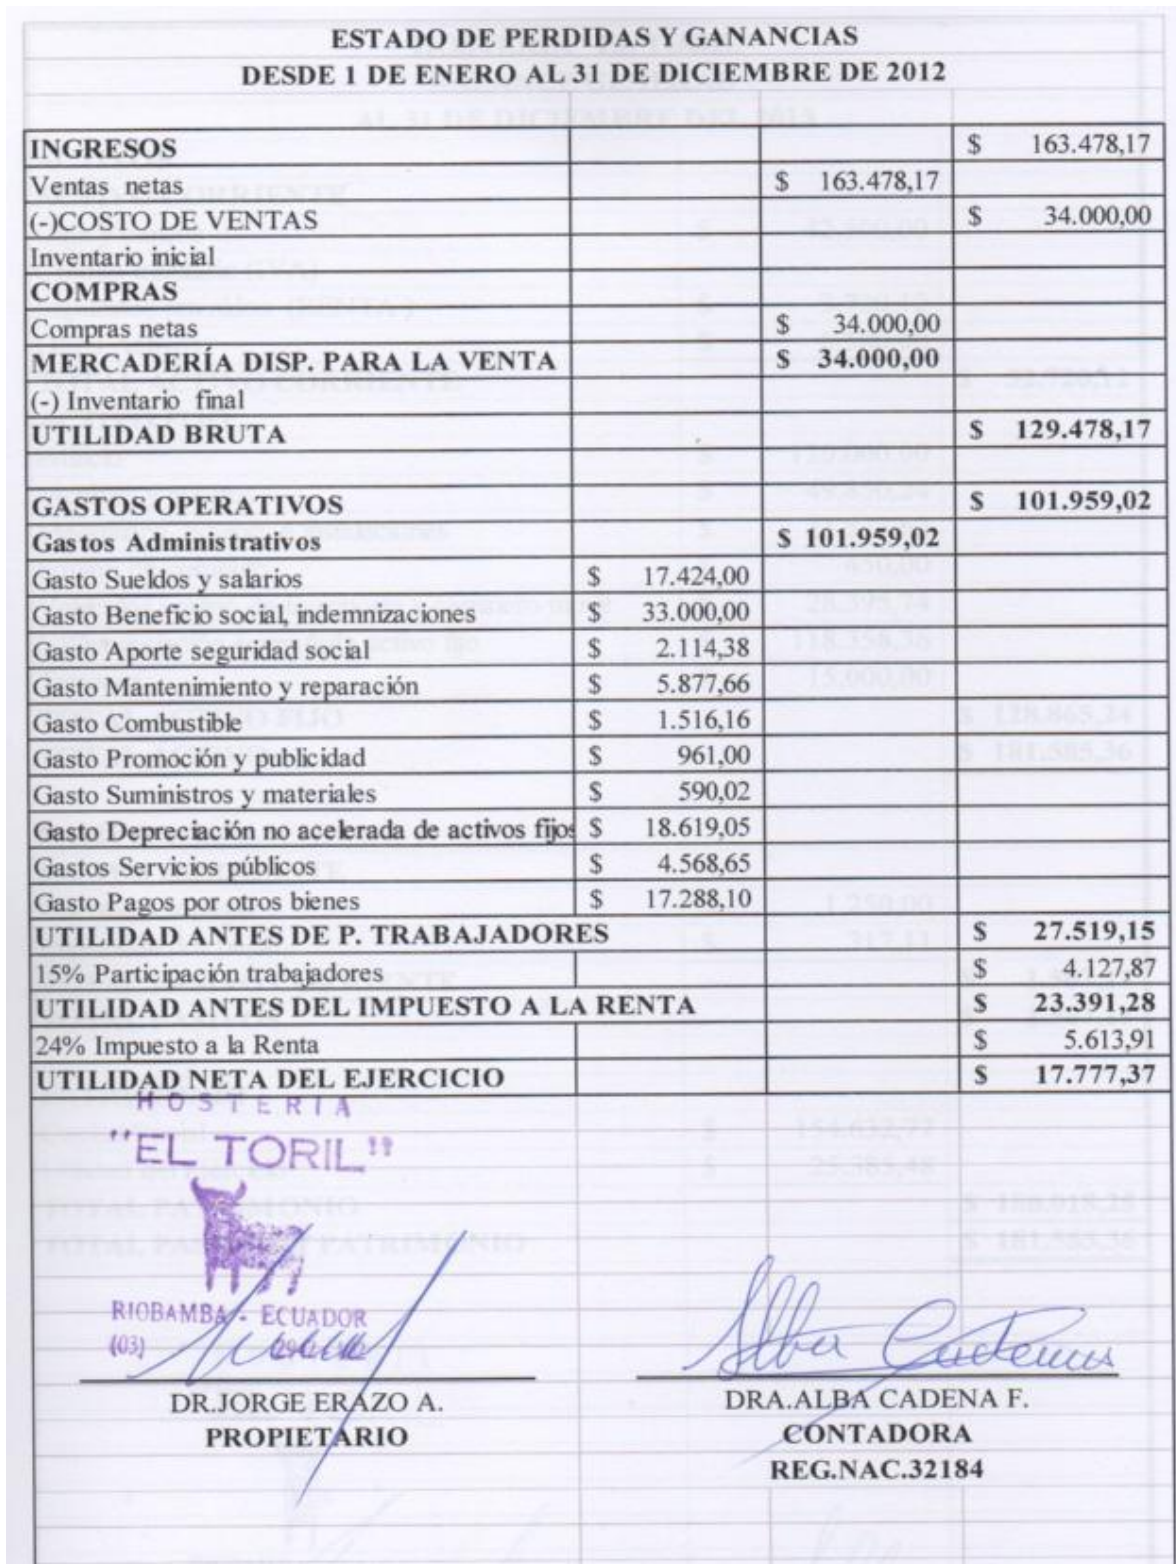 ESTADO DE PERDIDAS Y GANANCIAS
DESDE 1 DE ENERO AL 31 DE DICIEMBRE DE 2012
INGRESOS $ 163.478,17
Ventas netas $ 163.478,17
(-)COSTO DE VENTAS $ 34.000,00
Inventario inicial
COMPRAS
Compras netas $ 34.000,00
MERCADERÍA DISP. PARA LA VENTA $ 34.000,00
(-) Inventario final
UTILIDAD BRUTA $ 129.478,17
GASTOS OPERATIVOS $ 101.959,02
Gastos Administrativos $ 101.959,02
Gasto Sueldos y salarios $ 17.424,00
Gasto Beneficio social, indemnizaciones $ 33.000,00
Gasto Aporte seguridad social $ 2.114,38
Gasto Mantenimiento y reparación $ 5.877,66
Gasto Combustible $ 1.516,16
Gasto Promoción y publicidad $ 961,00
Gasto Suministros y materiales $ 590,02
Gasto Depreciación no acelerada de activos fijos $ 18.619,05
Gastos Servicios públicos $ 4.568,65
Gasto Pagos por otros bienes $ 17.288,10
UTILIDAD ANTES DE P. TRABAJADORES $ 27.519,15
15% Participación trabajadores $ 4.127,87
UTILIDAD ANTES DEL IMPUESTO A LA RENTA $ 23.391,28
24% Impuesto a la Renta $ 5.613,91
UTILIDAD NETA DEL EJERCICIO $ 17.777,37
HOSTERIA
"EL TORIL"
RIOBAMBA - ECUADOR
(03)
Alba Cadena
DR.JORGE ERAZO A. DRA.ALBA CADENA F.
PROPIETARIO CONTADORA
REG.NAC.32184